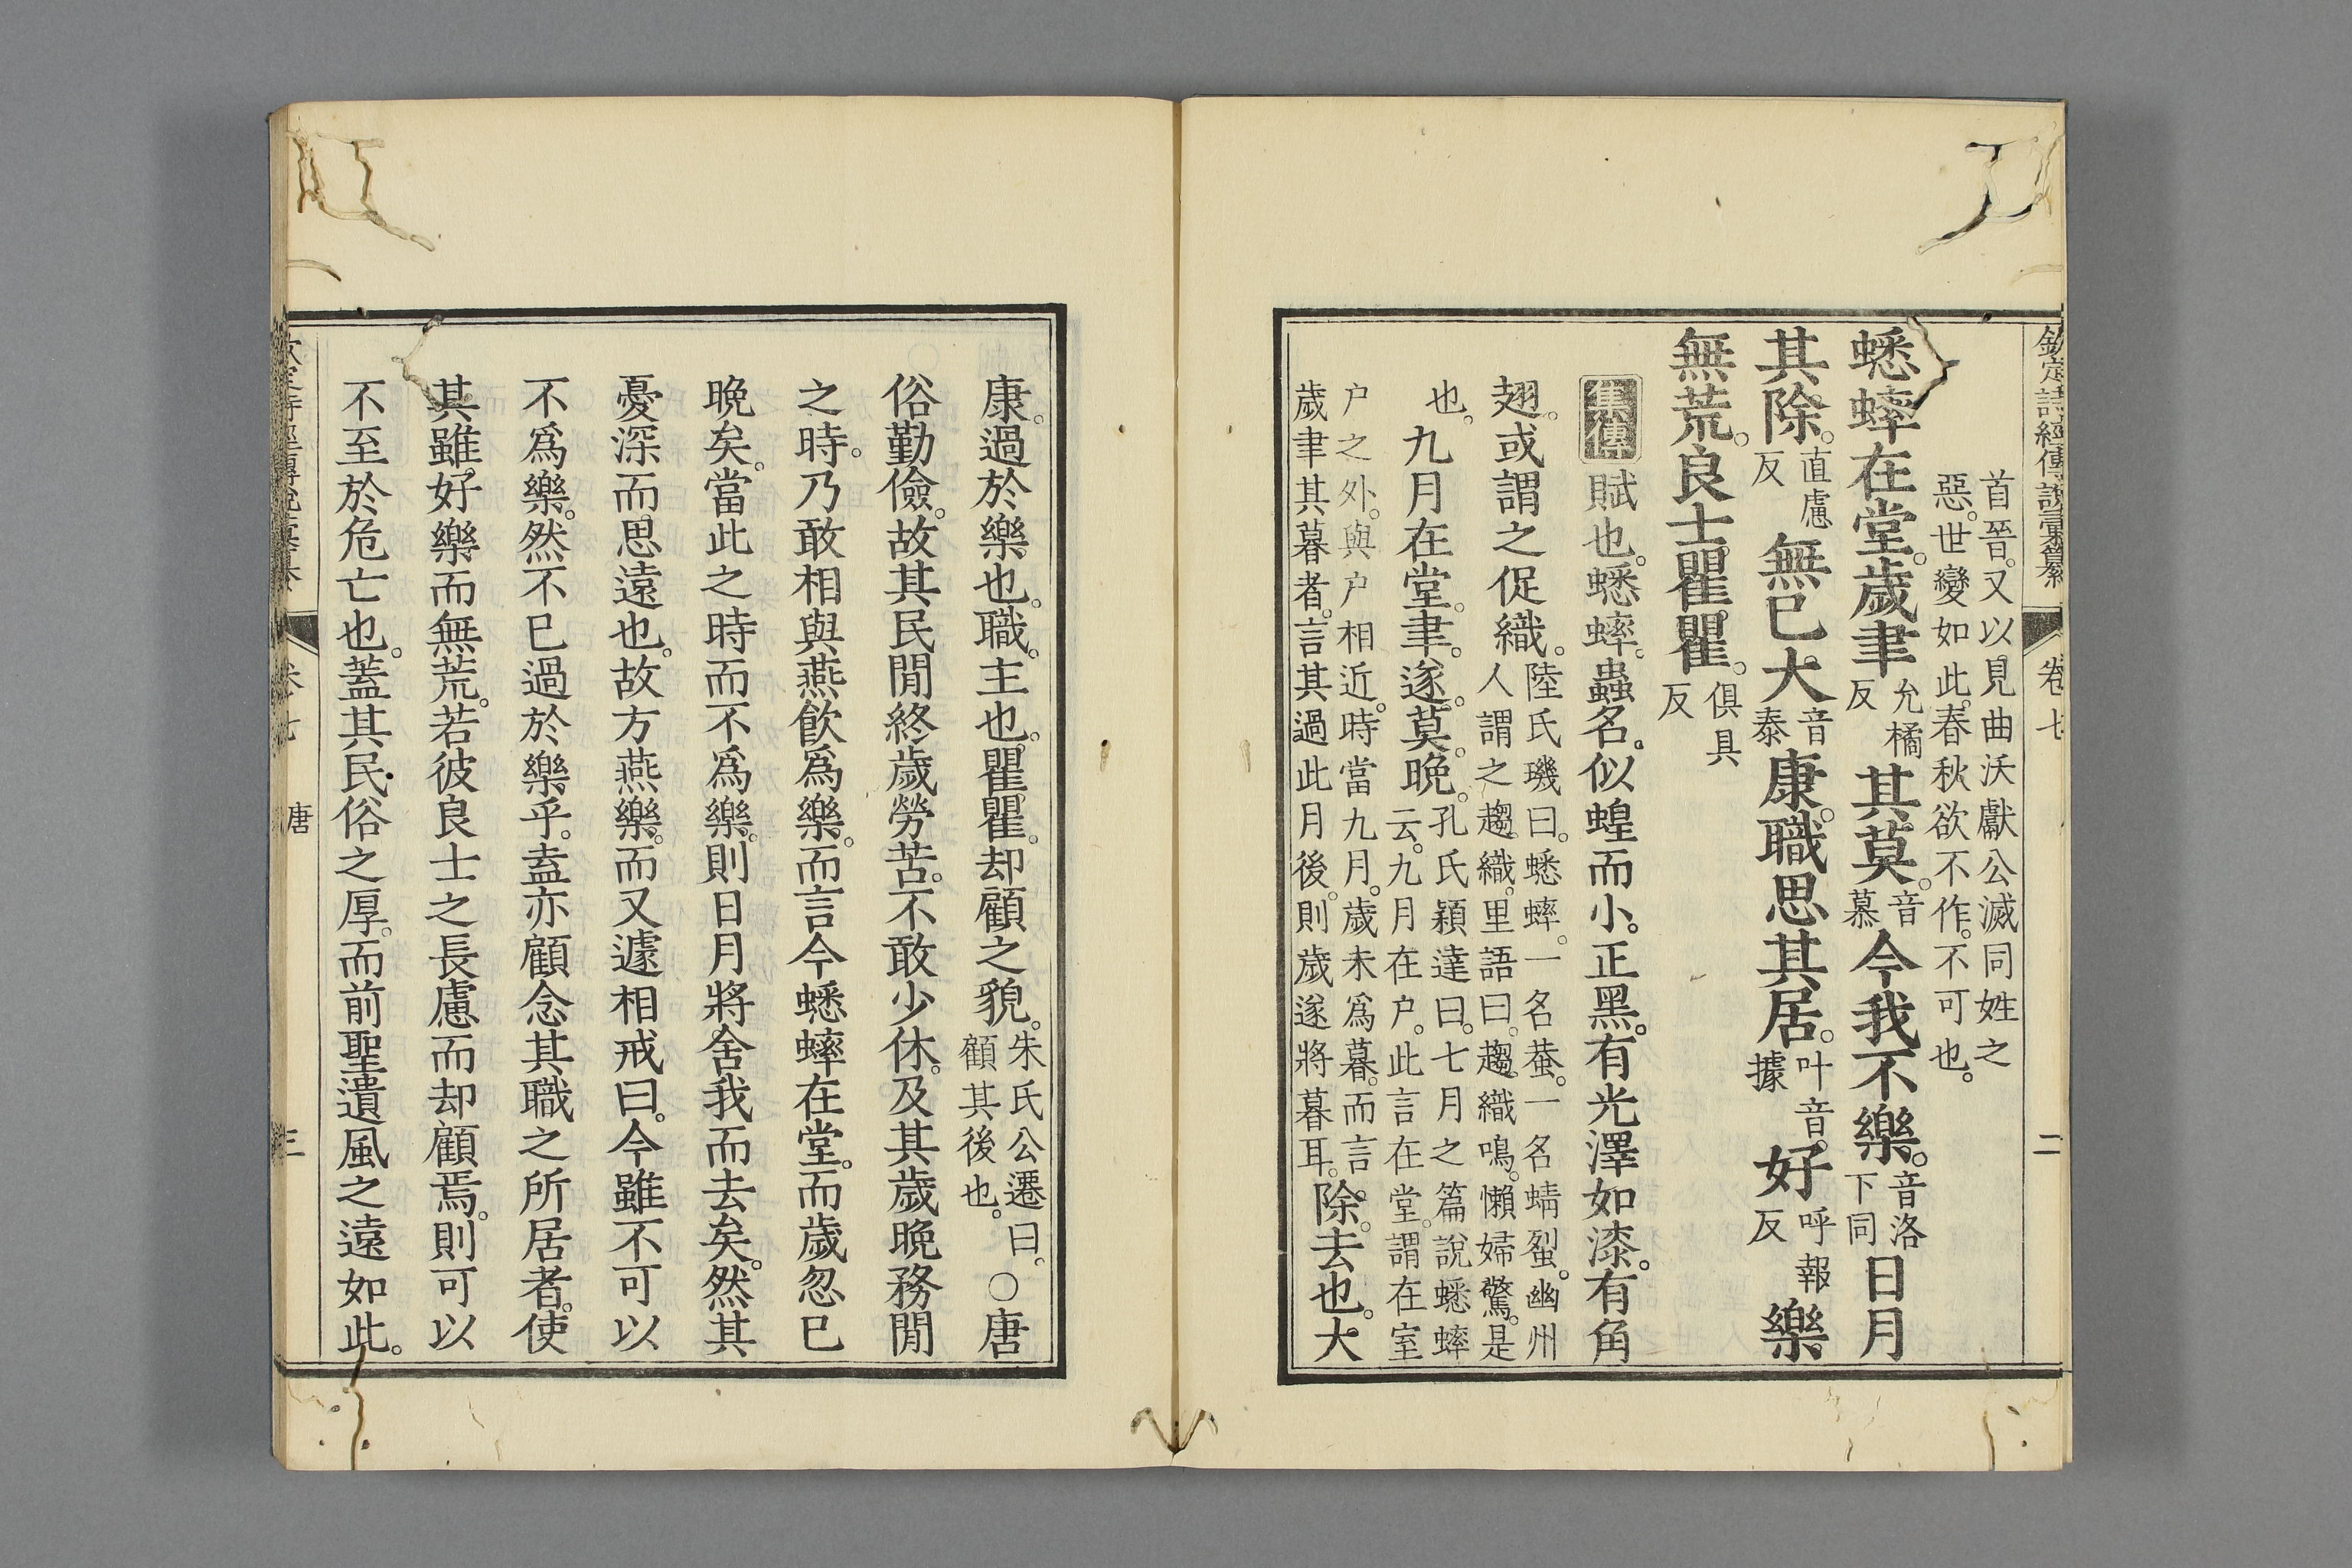 欽定詩經傳說彙纂 卷七 二
首晉。又以見曲沃獻公滅同姓之
惡。世變如此。春秋欲不作。不可也。
蟋蟀在堂。歲聿允橘反其莫。音慕今我不樂。音洛下同日月
其除。直慮反無已大音泰康。職思其居。叶音據好呼報反樂
無荒。良士瞿瞿。俱具反
集傳 賦也。蟋蟀。蟲名。似蝗而小。正黑。有光澤如漆。有角
翅。或謂之促織。陸氏璣曰。蟋蟀。一名蛬。一名蜻蛚。幽州人謂之趨織。里語曰。趨織鳴。懶婦驚。是
也。九月在堂。聿。遂。莫。晚。孔氏穎達曰。七月之篇說蟋蟀云。九月在户。此言在堂。謂在室
户之外。與户相近。時當九月。歲未爲暮。而言
歲聿其暮者。言其過此月後。則歲遂將暮耳。除。去也。大
康。過於樂也。職。主也。瞿瞿。却顧之貌。朱氏公遷曰。顧其後也。○唐
俗勤儉。故其民閒終歲勞苦。不敢少休。及其歲晚務閒
之時。乃敢相與燕飮爲樂。而言今蟋蟀在堂。而歲忽已
晚矣。當此之時而不爲樂。則日月將舍我而去矣。然其
憂深而思遠也。故方燕樂。而又遽相戒曰。今雖不可以
不爲樂。然不已過於樂乎。盍亦顧念其職之所居者。使
其雖好樂而無荒。若彼良士之長慮而却顧焉。則可以
不至於危亡也。蓋其民俗之厚。而前聖遺風之遠如此。
唐 三